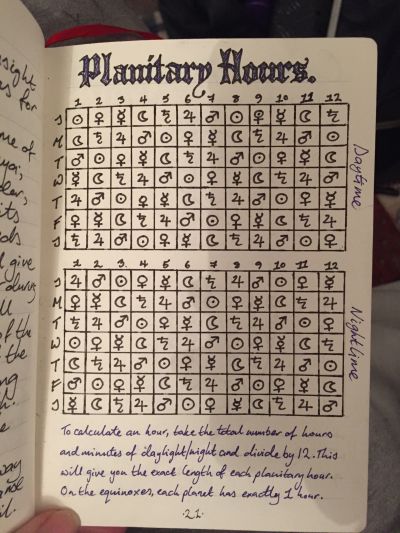 sight
for
me of
its
give
all
of the
the
way
Planitary Hours.
1 2 3 4 5 6 7 8 9 10 11 12
S ☉ ♀ ☿ ☾ ♄ ♃ ♂ ☉ ♀ ☿ ☾ ♄
M ☾ ♄ ♃ ♂ ☉ ♀ ☿ ☾ ♄ ♃ ♂ ☉
T ♂ ☉ ♀ ☿ ☾ ♄ ♃ ♂ ☉ ♀ ☿ ☾
W ☿ ☾ ♄ ♃ ♂ ☉ ♀ ☿ ☾ ♄ ♃ ♂
T ♃ ♂ ☉ ♀ ☿ ☾ ♄ ♃ ♂ ☉ ♀ ☿
F ♀ ☿ ☾ ♄ ♃ ♂ ☉ ♀ ☿ ☾ ♄ ♃
S ♄ ♃ ♂ ☉ ♀ ☿ ☾ ♄ ♃ ♂ ☉ ♀
Daytime
1 2 3 4 5 6 7 8 9 10 11 12
S ♃ ♂ ☉ ♀ ☿ ☾ ♄ ♃ ♂ ☉ ♀ ☿
M ♀ ☿ ☾ ♄ ♃ ♂ ☉ ♀ ☿ ☾ ♄ ♃
T ♄ ♃ ♂ ☉ ♀ ☿ ☾ ♄ ♃ ♂ ☉ ♀
W ☉ ♀ ☿ ☾ ♄ ♃ ♂ ☉ ♀ ☿ ☾ ♄
T ☾ ♄ ♃ ♂ ☉ ♀ ☿ ☾ ♄ ♃ ♂ ☉
F ♂ ☉ ♀ ☿ ☾ ♄ ♃ ♂ ☉ ♀ ☿ ☾
S ☿ ☾ ♄ ♃ ♂ ☉ ♀ ☿ ☾ ♄ ♃ ♂
Nighttime
To calculate an hour, take the total number of hours
and minutes of daylight/night and divide by 12. This
will give you the exact length of each planitary hour.
On the equinoxes, each planet has exactly 1 hour.
·21·